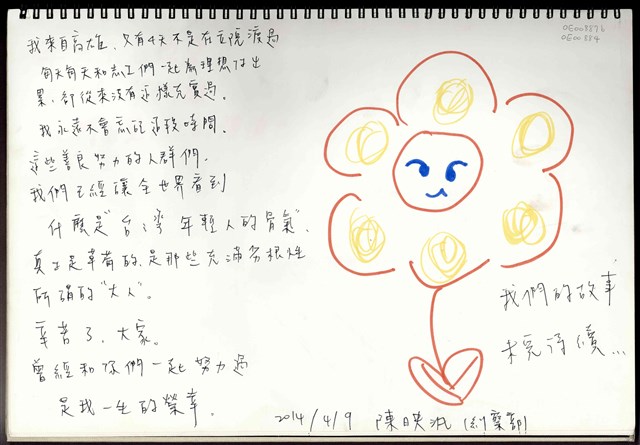 我來自高雄,只有4天不是在立院渡過
每天每天和志工們一起為理想付出
累,卻從來沒有這樣充實過。
我永遠不會忘記這段時間。
這些善良努力的人群們。
我們已經讓全世界看到
什麼是"台灣年輕人的骨氣"。
真正是草莓的,是那些充滿劣根性
所謂的"大人"。
辛苦了,大家。
曾經和你們一起努力過
是我一生的榮幸。
2014/4/9 陳映汎
我們的故事
未完待續...
0E00887b
0E00884